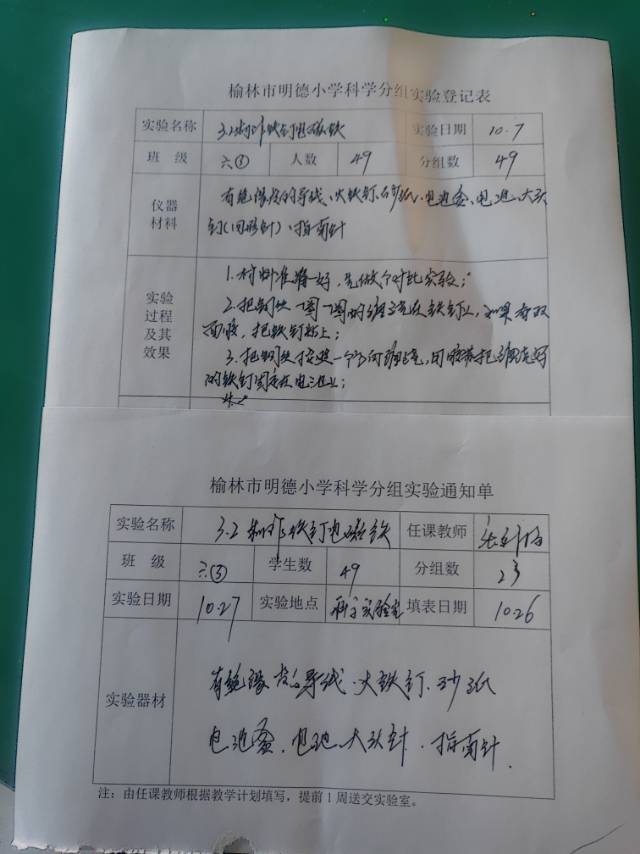 榆林市明德小学科学分组实验登记表
实验名称 3.2制作铁钉电磁铁 实验日期 10.7
班 级 六③ 人数 49 分组数 49
仪器材料 有绝缘皮的导线、大铁钉、砂纸、电池盒、电池、大头
针(回形针)、指南针
实验过程及其效果 1.材料准备好,先做个对比实验;
2.把铜丝一圈一圈的缠绕在铁钉上,如果有双
面胶,把铁钉粘上;
3.把铜丝按照一个方向缠绕,用胶带把缠绕好
的铁钉固定在电池上;
榆林市明德小学科学分组实验通知单
实验名称 3.2 制作铁钉电磁铁 任课教师
班 级 六(3) 学生数 49 分组数 23
实验日期 10.27 实验地点 科学实验室 填表日期 10.26
实验器材 有绝缘皮导线、大铁钉、砂纸
电池盒、电池、大头针、指南针.
注:由任课教师根据教学计划填写,提前1周送交实验室。